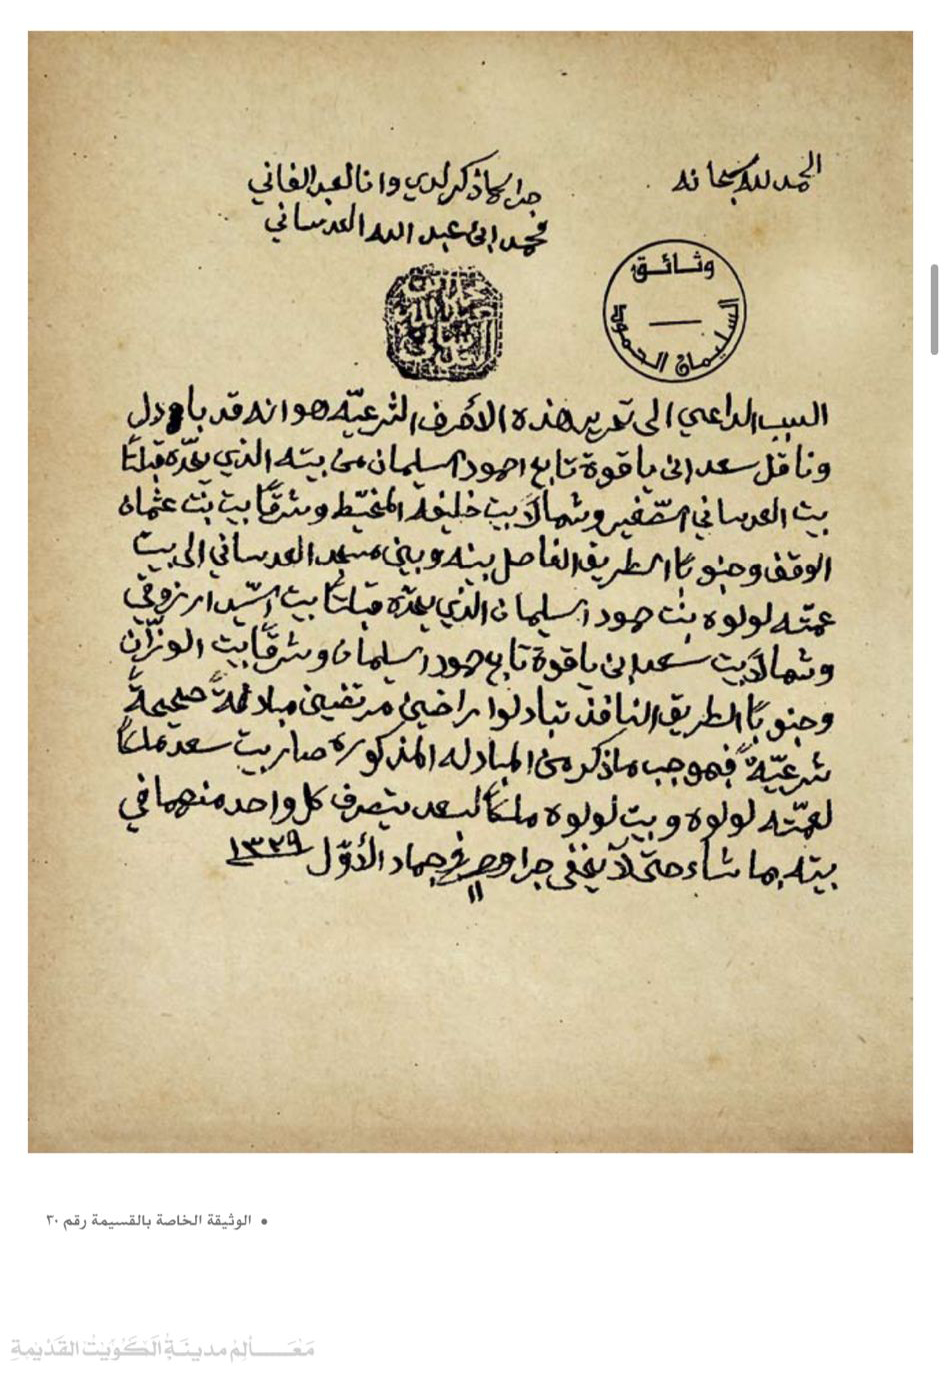 الحمد لله سبحانه
جرا كما ذكر لدي وانا العبد الفاني
محمد ابن عبد الله العدساني
وثائق
السليمان الحمود
السبب الداعي الى تحرير هذه الأحرف الشرعيّه هو انه قد بادل
وناقل سعد ابن ياقوة تابع احمود السليمان من بيته الذي يحدّه قبلتاً
بيت العدساني الصّغير وشمالاً بيت خليفه المخيّط وشرقاً بيت بنت عثمان
الوقف وجنوباً الطريق الفاصل بينه وبين مسجد العدساني الى بيت
عمّته لولوه بنت حمود السليمان الذي يحدّه قبلتاً بيت السّيد ارزوقي
وشمالاً بيت سعد ابن ياقوة تابع حمود السليمان وشرقاً بيت الوزّان
وجنوباً الطريق النافذ تبادلوا راضين مرتضين مبادلةً صحيحةً
شرعيّةً فبموجب ما ذكر من المبادله المذكوره صار بيت سعد ملكاً
لعمّته لولوه وبيت لولوه ملكاً لسعد يتصرف كل واحد منهما في
بيته بما شاء حتى لا يخفى جرا وحرر في جماد الأوّل ١٣٢٩
١١
• الوثيقة الخاصة بالقسيمة رقم ٣٠
معالم مدينة الكويت القديمة